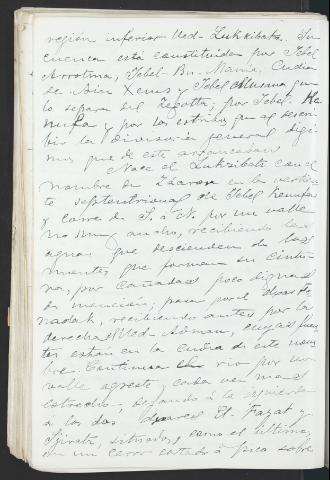 región inferior Ued-Lukkibats. Su
cuenca está constituida por Yebel
Arrotma, Yebel-Bu-Mania, Cudia
de Ain Xenus y Yebel que
lo separa del Zegotta; por Yebel.
nufa y por los estribos que al descri-
bir la divisoria general diji-
mos que de este arrancaban
Nace el Lukkibats con el
nombre de Zharva en la vertien-
te septentrional de Yebel Kenufa
y corre de S. á N. por un valle
no muy ancho, recibiendo las
aguas que descienden de los
montes que forman su cintu-
ra, por cañadas poco dignas
de mención; pasa por el
nadah, recibiendo antes por la
derecha Ued-Adman, cuyas fuen-
tes están en la Cudia de este nom-
bre. Continua el rio por un
valle agreste y cada vez mas
estrecho, dejando á la izquierda
á los dos El-Fazat y
situados, como el último,
en un cerro cortado á pico sobre